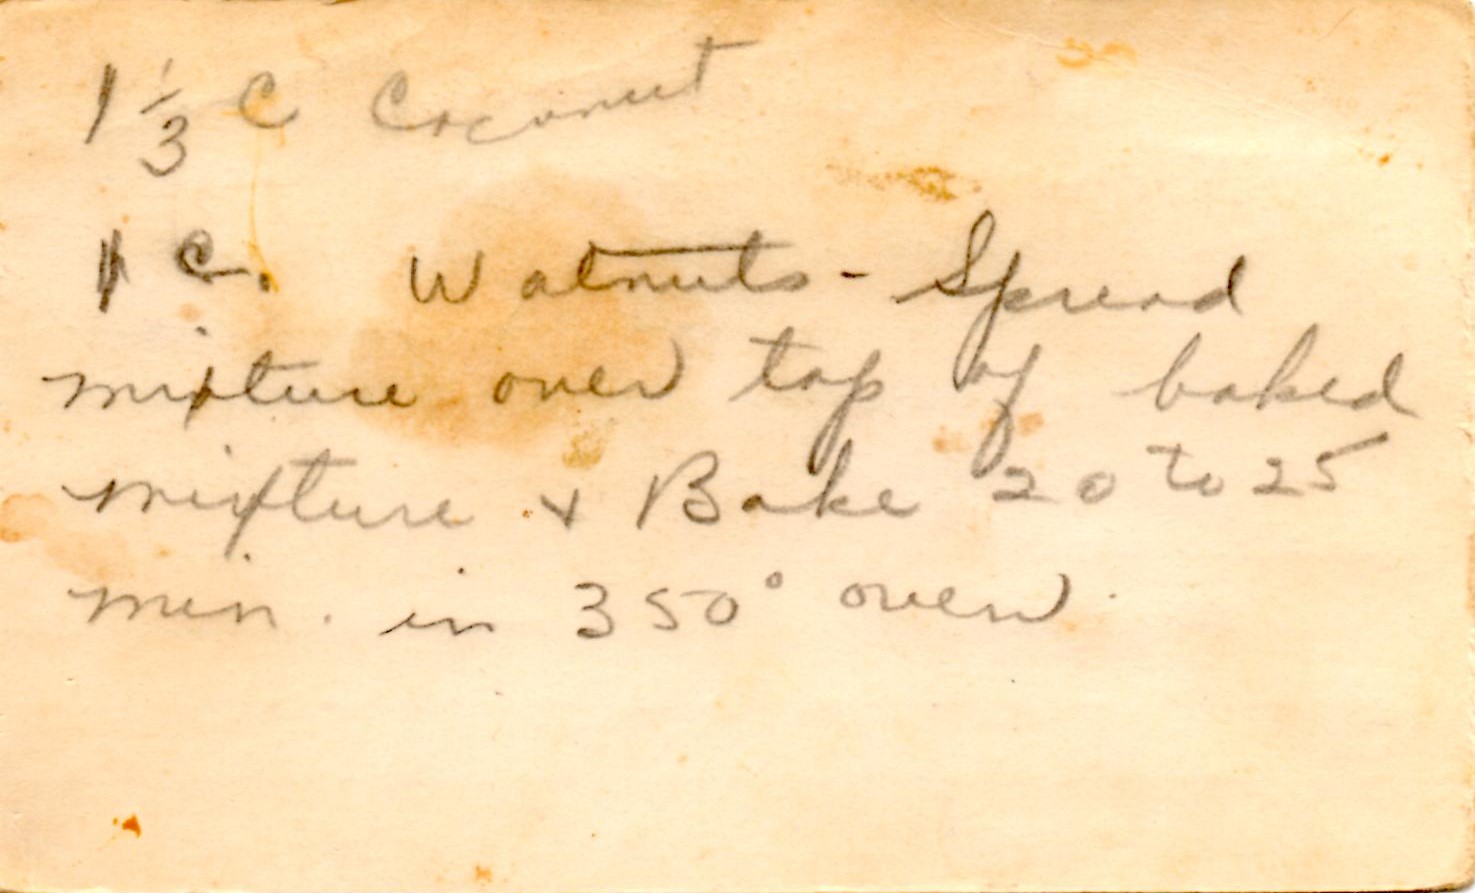 1 1/3 C Coconut
1 c. Walnuts - Spread
mixture over top of baked
mixture + Bake 20 to 25
min. in 350° oven.